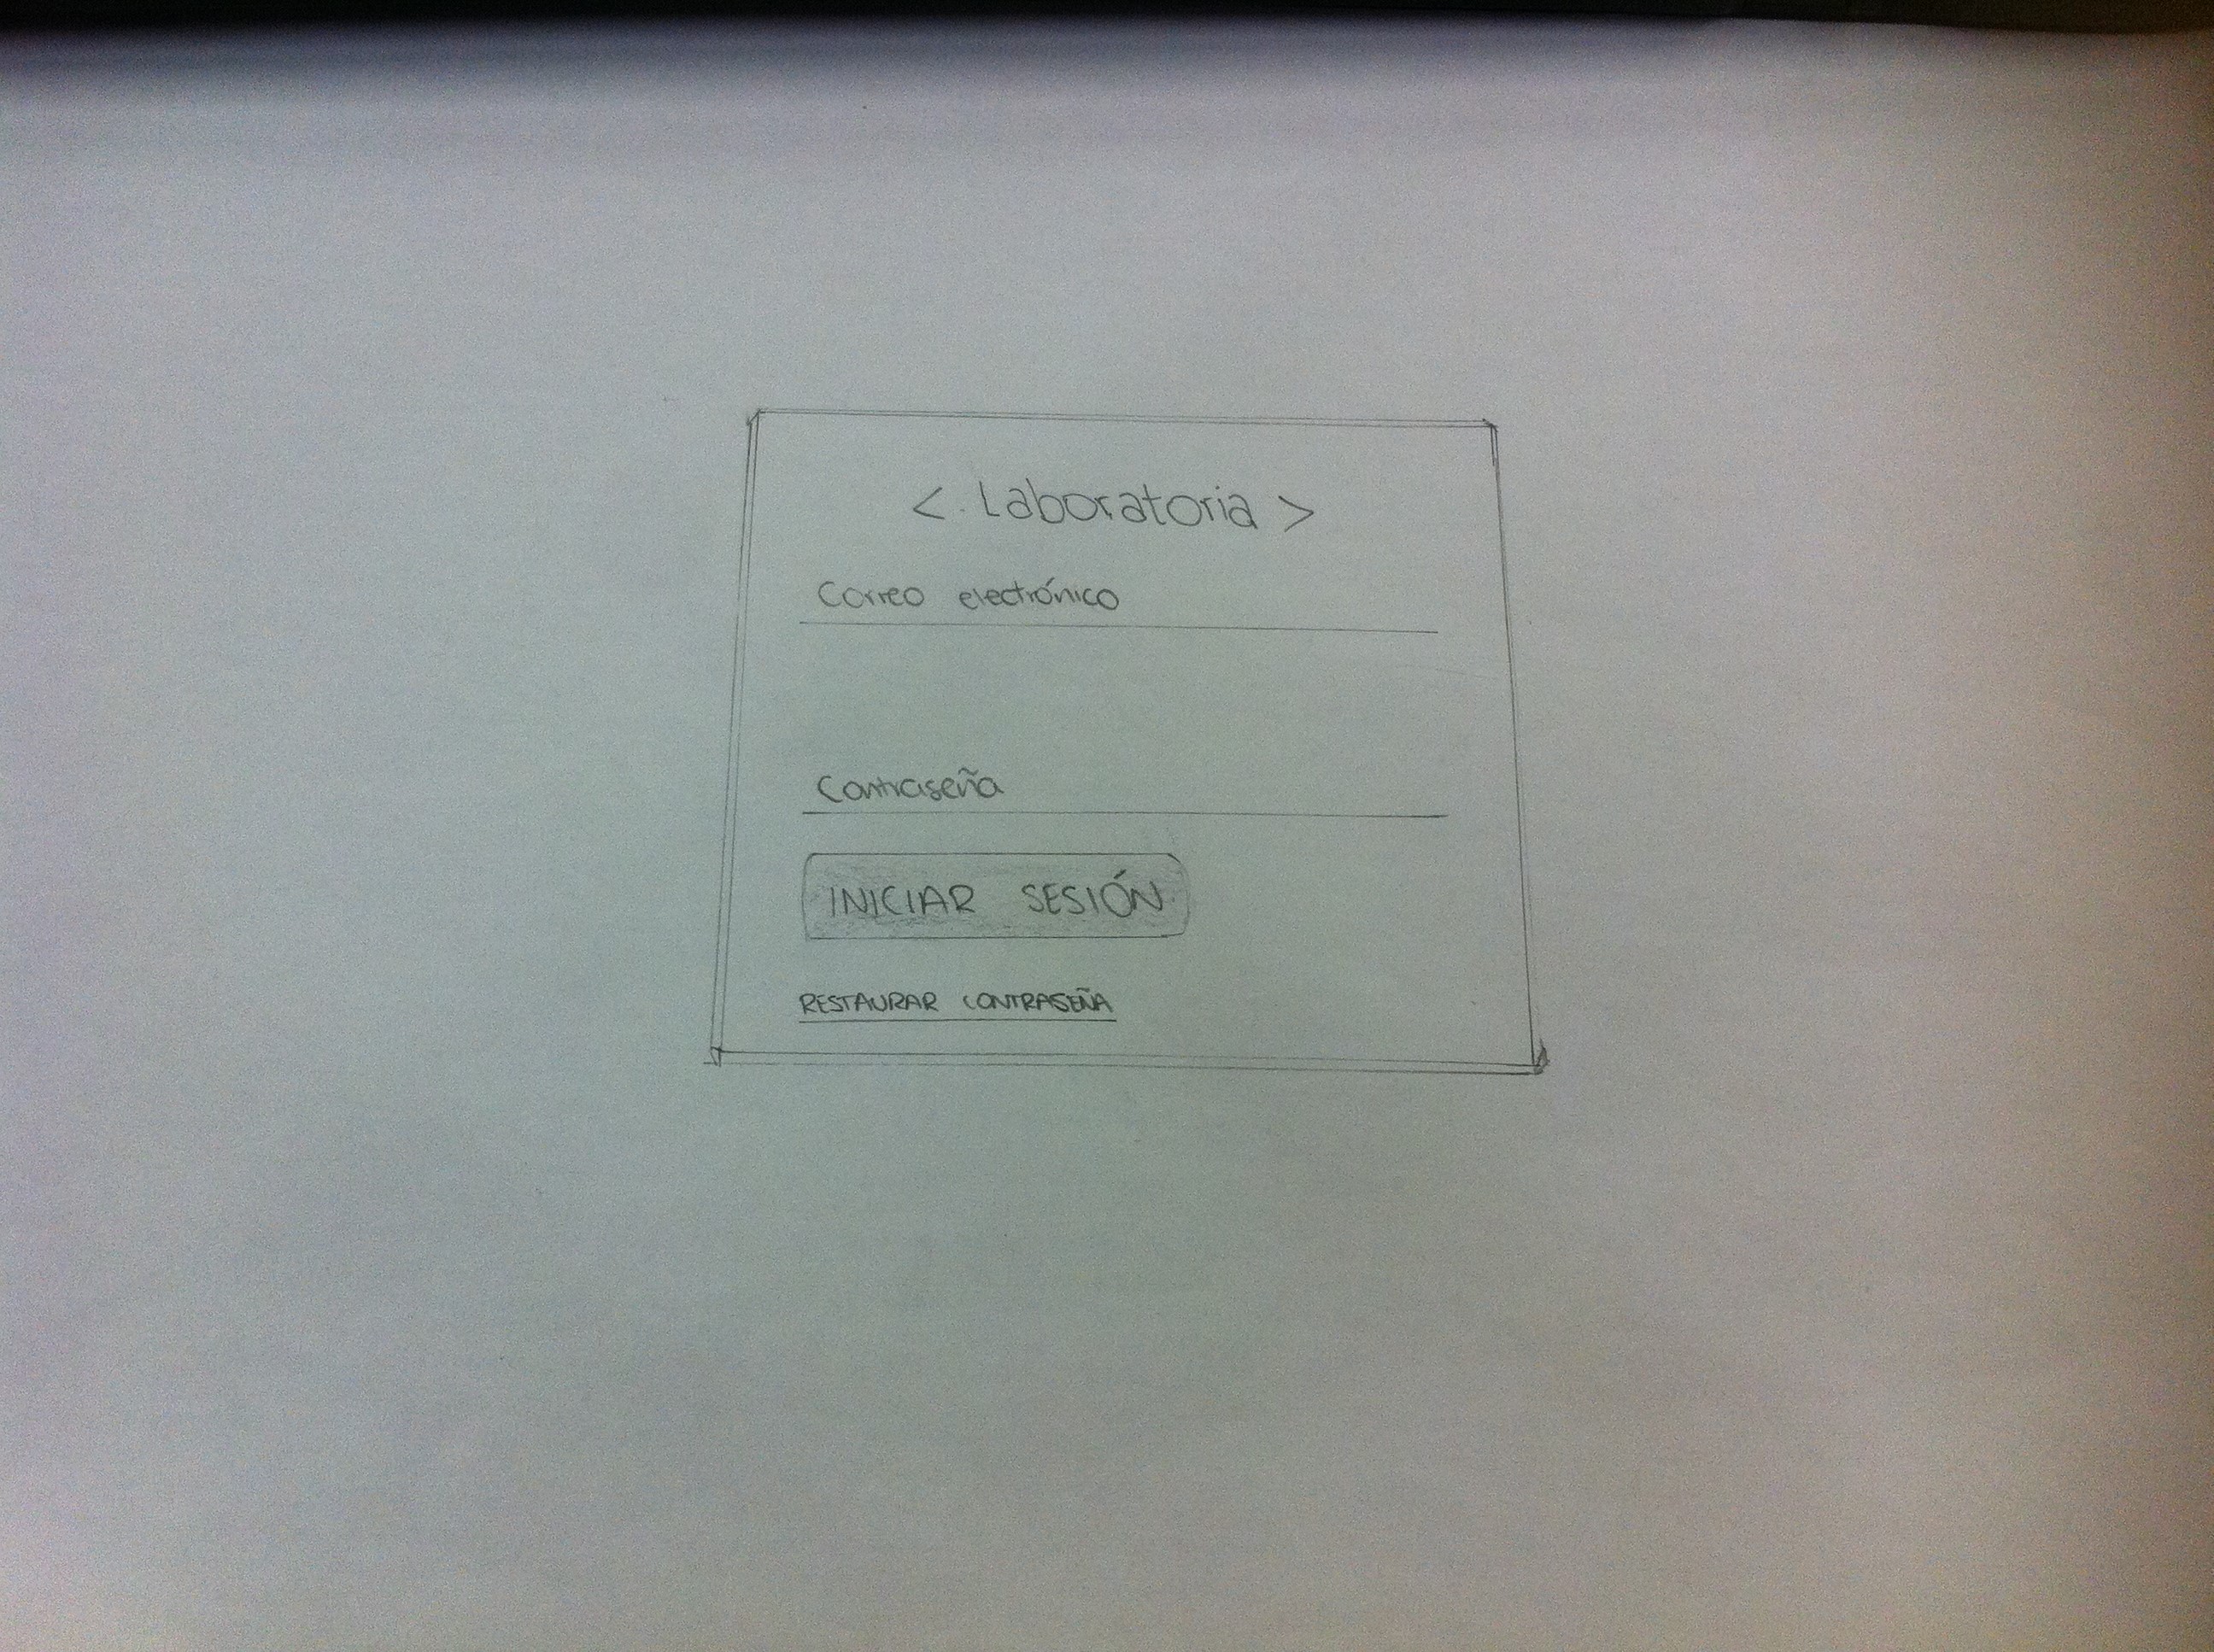 < Laboratoria >
Correo electrónico
Contraseña
INICIAR SESIÓN
RESTAURAR CONTRASEÑA